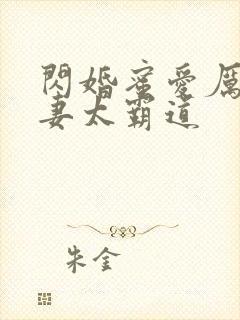 閃婚蜜愛厲
妻太霸道
朱金